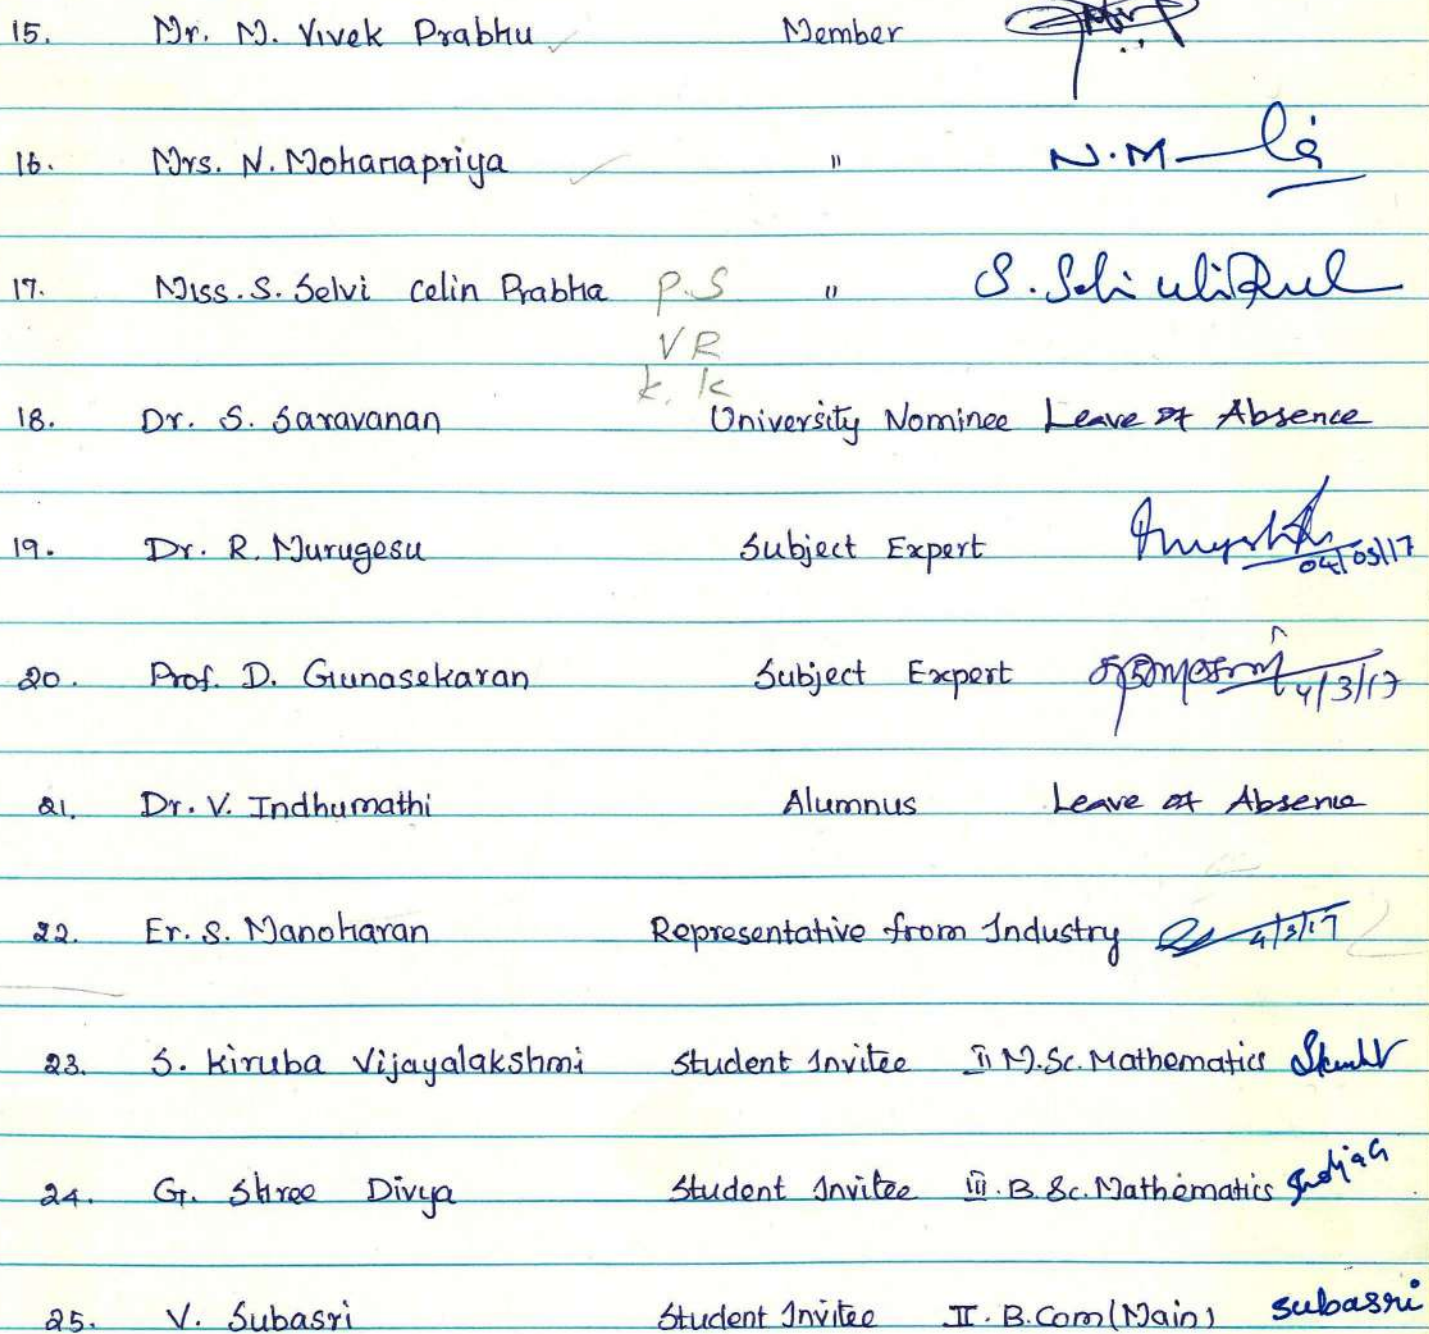 15. Mr. M. Vivek Prabhu Member
16. Mrs. N. Mohanapriya " N.M
17. Miss. S. Selvi Celin Prabha P.S " S.
VR
k. k
18. Dr. S. Saravanan University Nominee Leave of Absence
19. Dr. R. Murugesu Subject Expert 04/03/17
20. Prof. D. Gunasekaran Subject Expert 4/3/17
21. Dr. V. Indhumathi Alumnus Leave of Absence
22. Er. S. Manoharan Representative from Industry 4/3/17
23. S. Kiruba Vijayalakshmi Student Invitee II M.Sc. Mathematics
24. G. Shree Divya Student Invitee III. B.Sc. Mathematics
25. V. Subasri Student Invitee II. B.Com (Main) Subasri